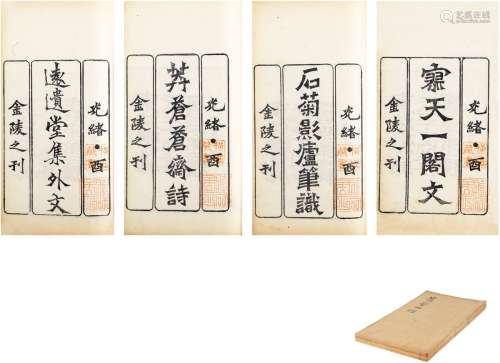 光緒·酉
寥天一閣文
金陵之刊
光緒·酉
石菊影廬筆識
金陵之刊
光緒·酉
莽蒼蒼齋詩
金陵之刊
光緒·酉
遠遺堂集外文
金陵之刊